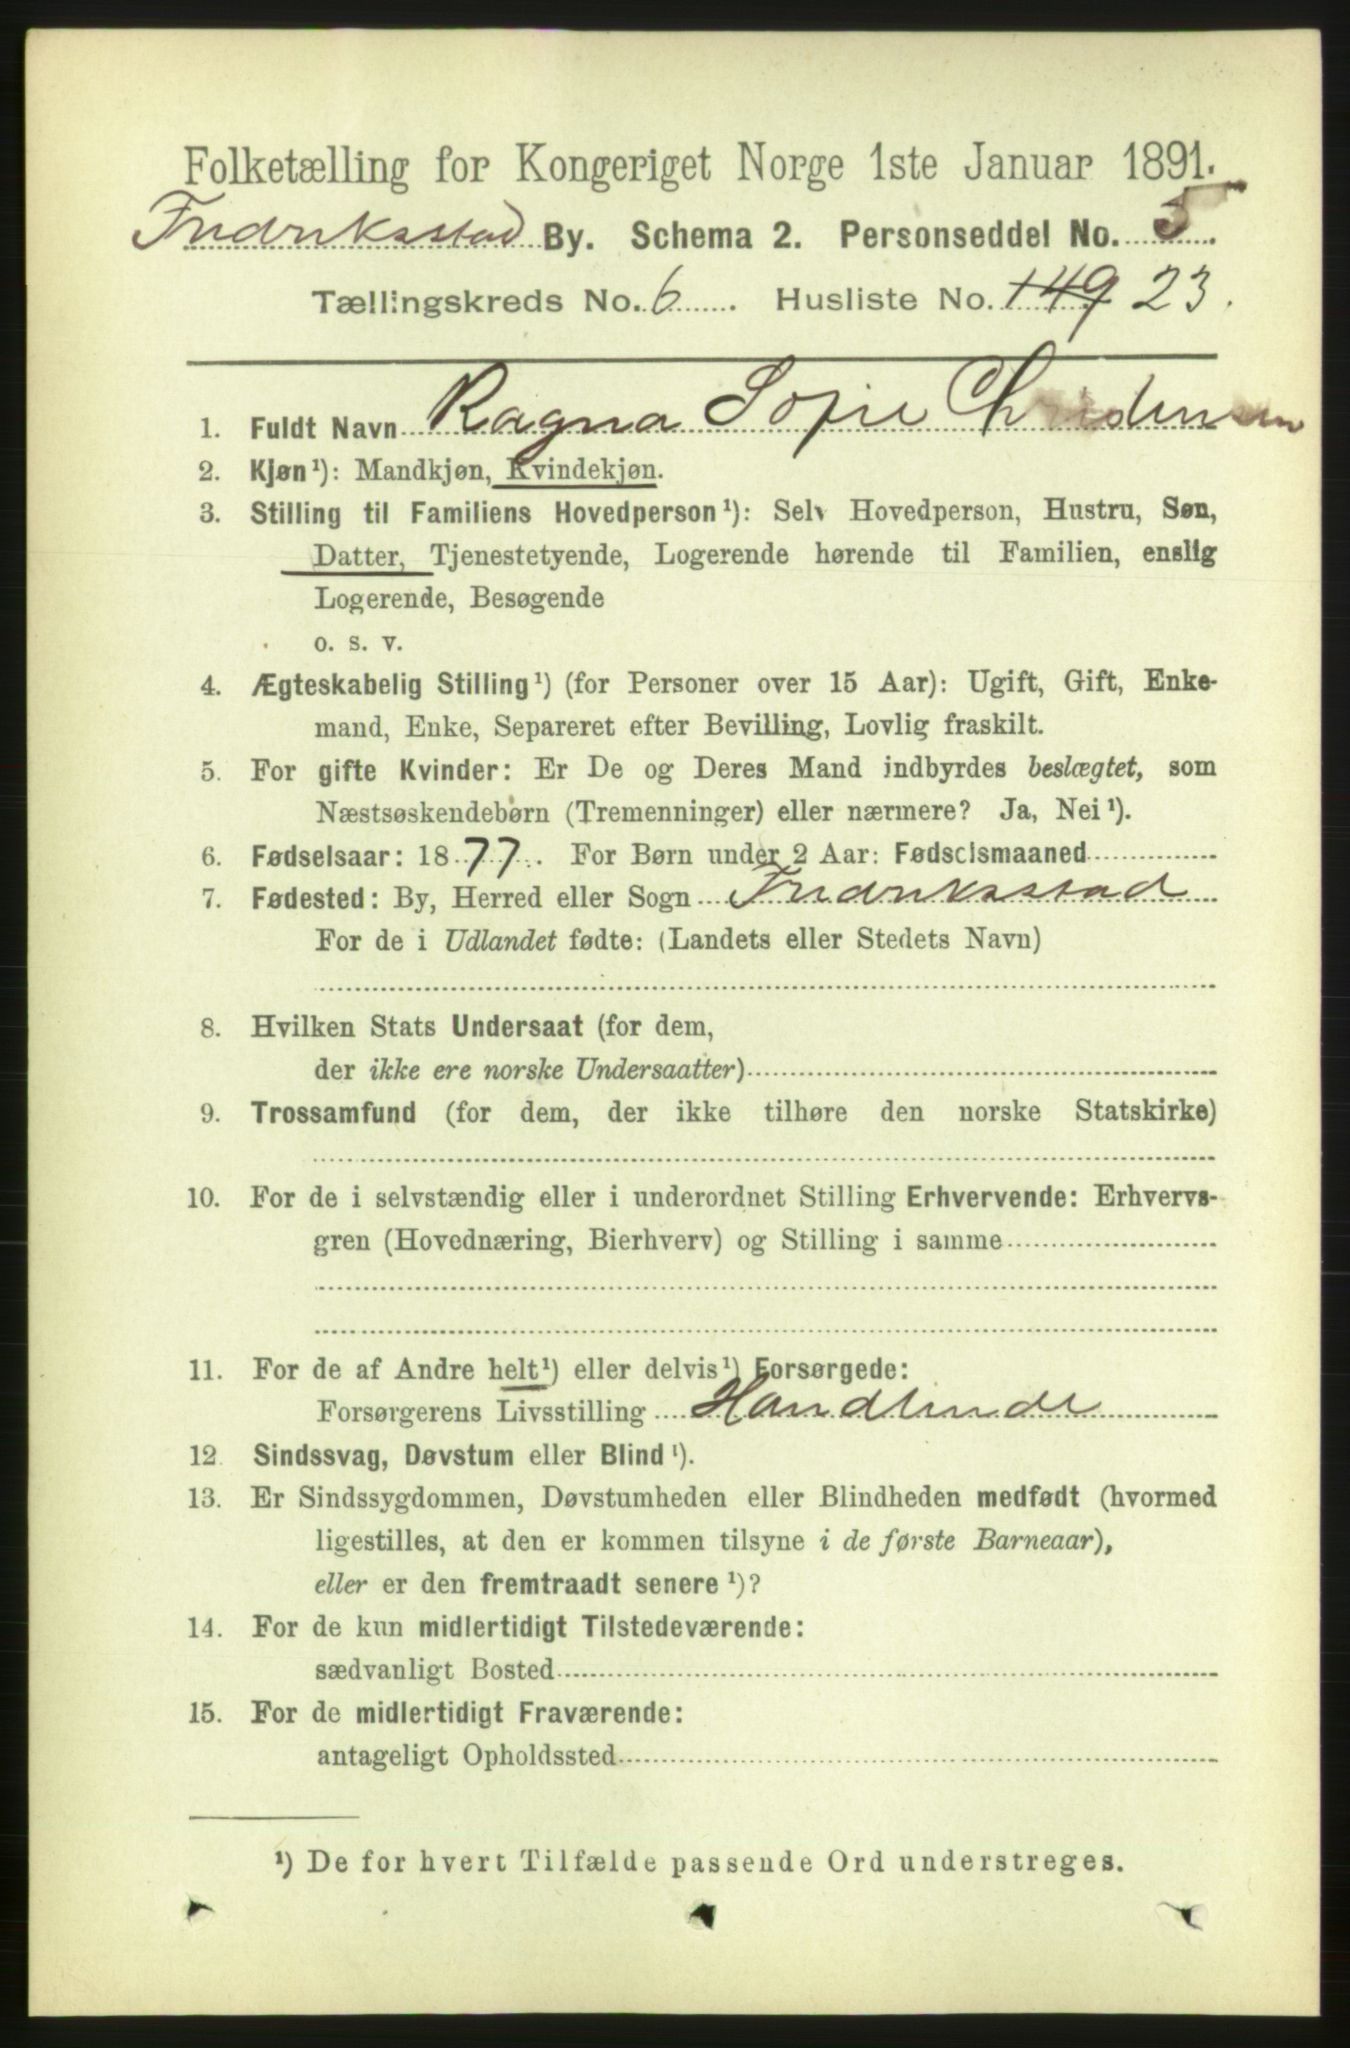 Folketælling for Kongeriget Norge 1ste Januar 1891.
Fredriksstad By. Schema 2. Personseddel No. 5.
Tællingskreds No. 6. Husliste No. 149 23.
1. Fuldt Navn Ragna Sofie
2. Kjøn¹): Mandkjøn, Kvindekjøn.
3. Stilling til Familiens Hovedperson¹): Selv Hovedperson, Hustru, Søn,
Datter, Tjenestetyende, Logerende hørende til Familien, enslig
Logerende, Besøgende
o. s. v.
4. Ægteskabelig Stilling¹) (for Personer over 15 Aar): Ugift, Gift, Enke-
mand, Enke, Separeret efter Bevilling, Lovlig fraskilt.
5. For gifte Kvinder: Er De og Deres Mand indbyrdes beslægtet, som
Næstsøskendebørn (Tremenninger) eller nærmere? Ja, Nei¹).
6. Fødselsaar: 1877. For Børn under 2 Aar: Fødselsmaaned
7. Fødested: By, Herred eller Sogn Fredriksstad
For de i Udlandet fødte: (Landets eller Stedets Navn)
8. Hvilken Stats Undersaat (for dem,
der ikke ere norske Undersaatter)
9. Trossamfund (for dem, der ikke tilhøre den norske Statskirke)
10. For de i selvstændig eller i underordnet Stilling Erhvervende: Erhvervs-
gren (Hovednæring, Bierhverv) og Stilling i samme
11. For de af Andre helt¹) eller delvis¹) Forsørgede:
Forsørgerens Livsstilling Handlende
12. Sindssvag, Døvstum eller Blind¹).
13. Er Sindssygdommen, Døvstumheden eller Blindheden medfødt (hvormed
ligestilles, at den er kommen tilsyne i de første Barneaar),
eller er den fremtraadt senere¹)?
14. For de kun midlertidigt Tilstedeværende:
sædvanligt Bosted
15. For de midlertidigt Fraværende:
antageligt Opholdssted
¹) De for hvert Tilfælde passende Ord understreges.